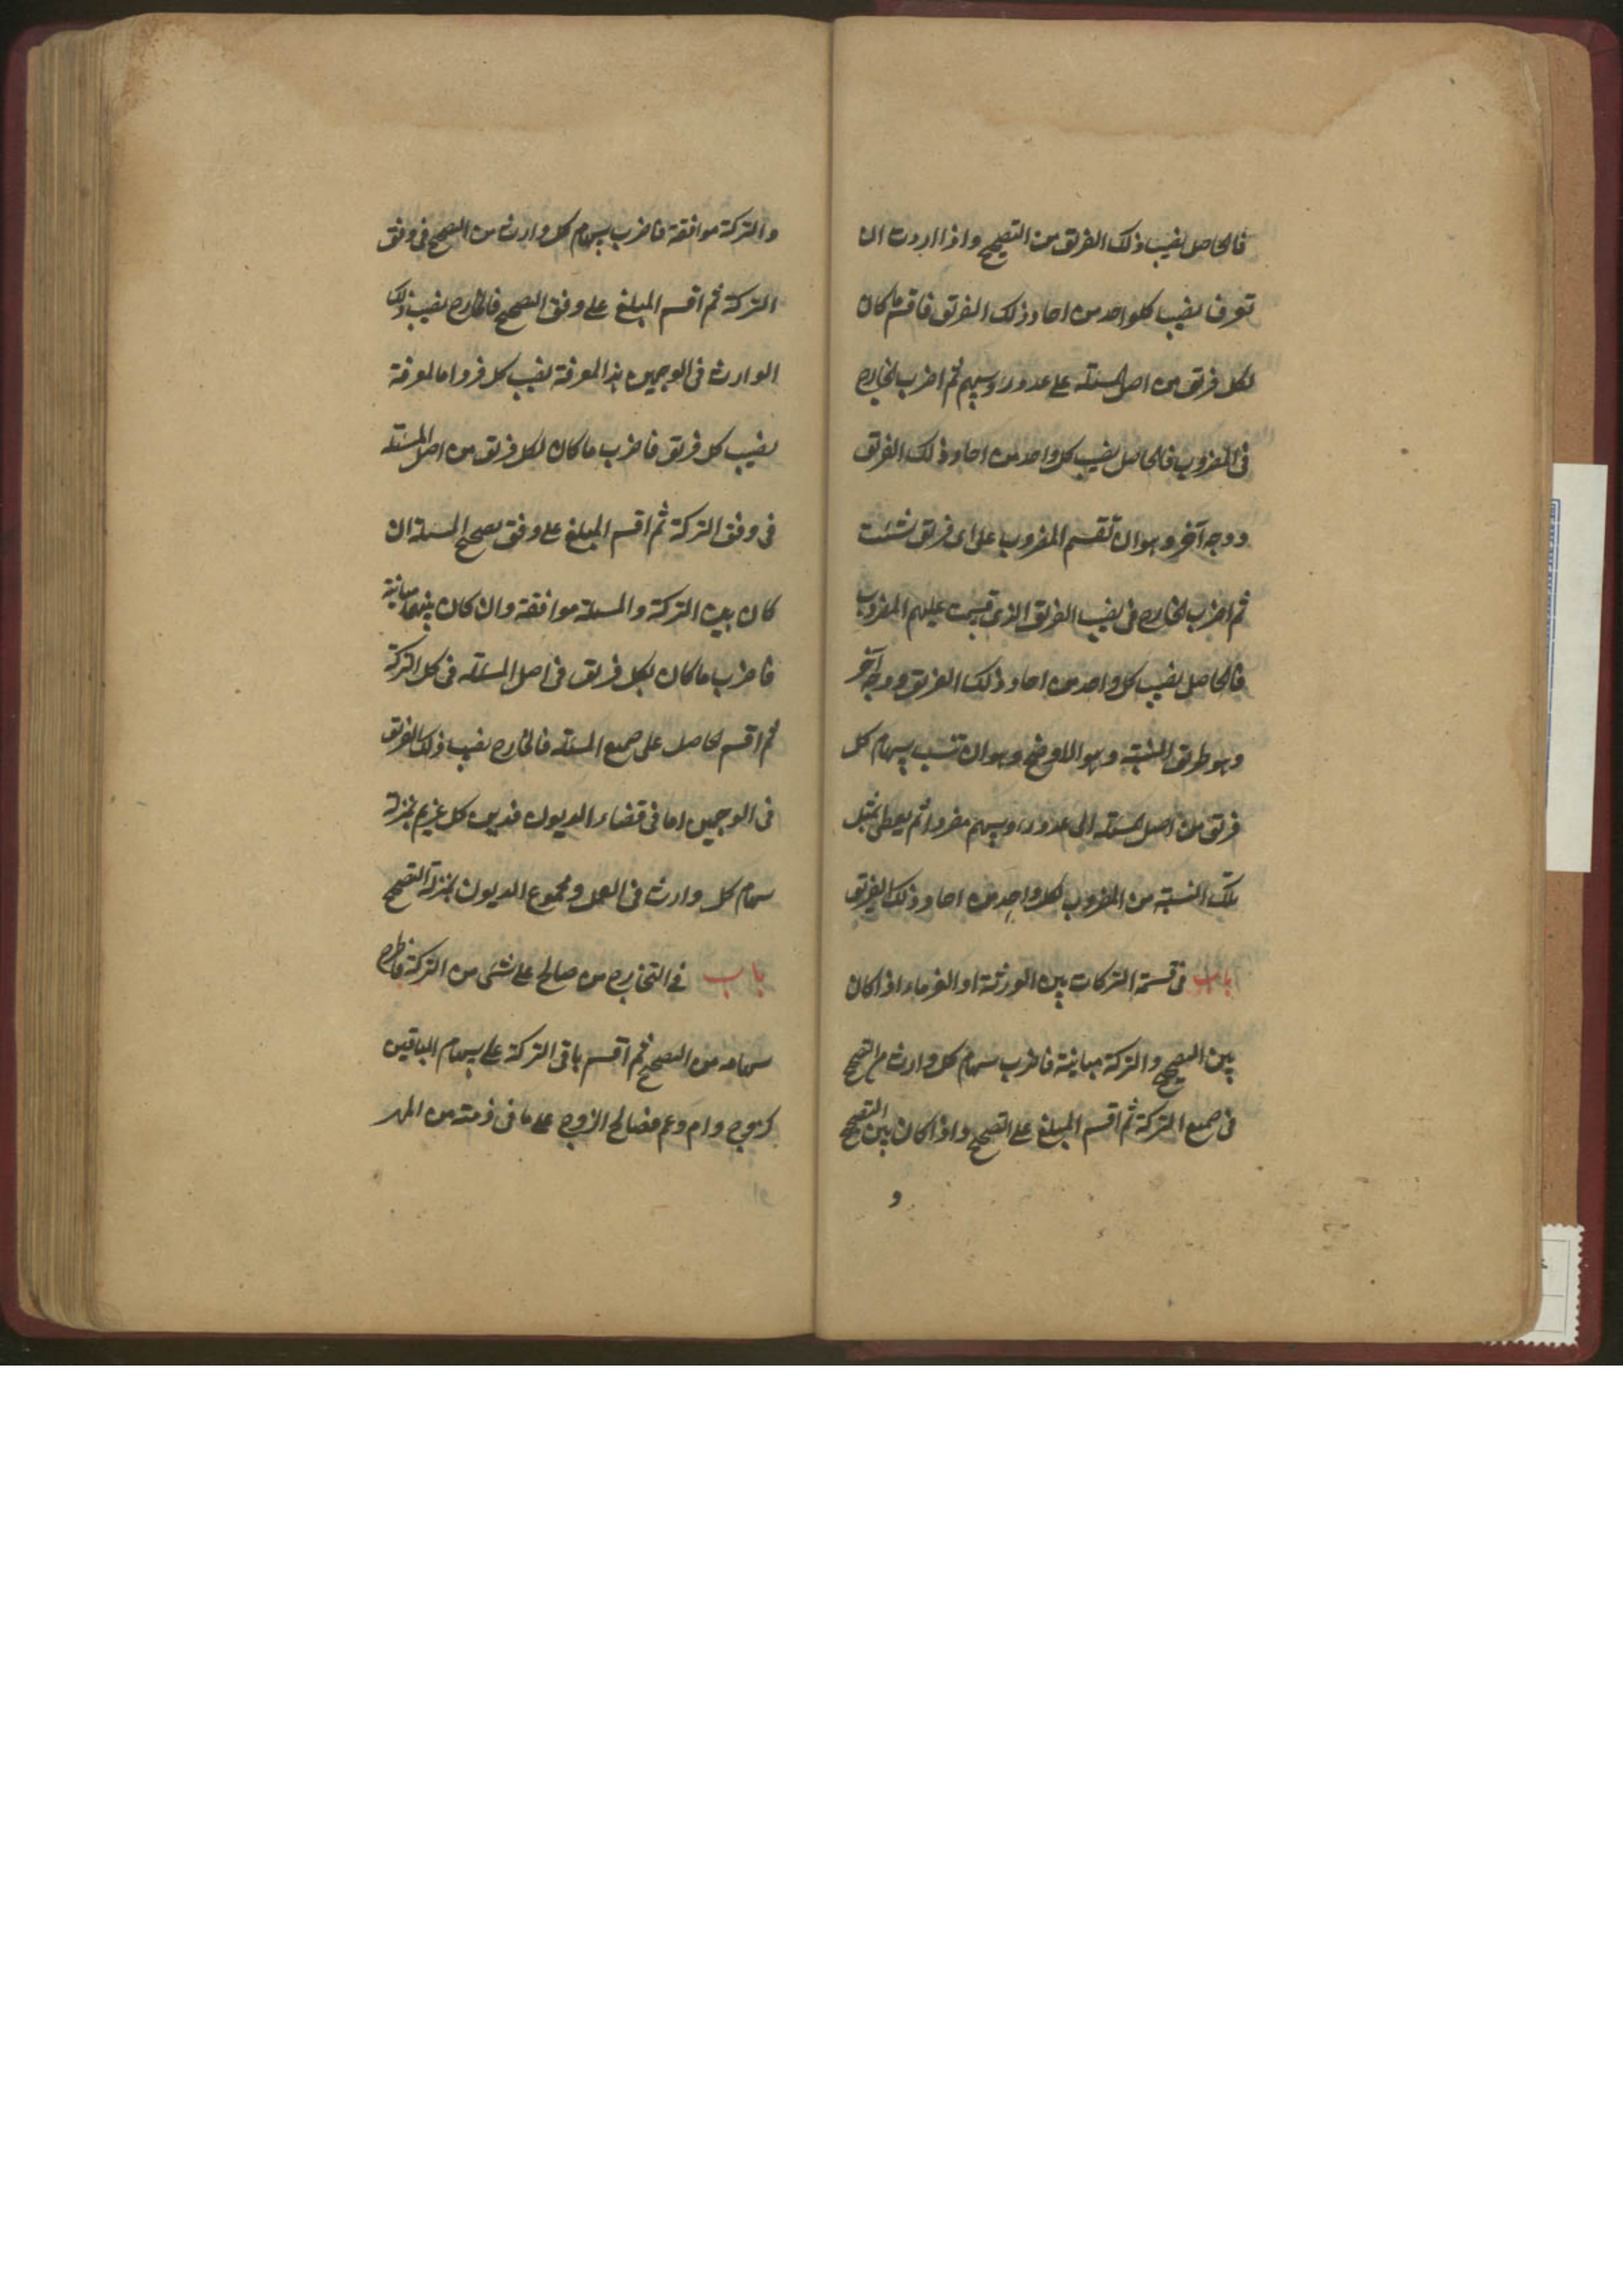 فالحاصل نصيب ذلك الفريق من التصحيح واذا اردت ان
تعرف نصيب كلواحد من احاد ذلك الفريق فاقسم ما كان
لكل فريق من اصل المسئلة على عدد رؤسهم ثم اضرب الخارج
فى المضروب فالحاصل نصيب كل واحد من احاد ذلك الفريق
ووجه آخر وهو ان تقسم المضروب على اى فريق شئت
ثم اضرب الخارج فى نصيب الفريق الذى قسمت عليهم المضروب
فالحاصل نصيب كل واحد من احاد ذلك الفريق ووجه آخر
وهو طريق النسبة وهو الاوضح وهو ان تنسب سهام كل
فريق من اصل المسئلة الى عدد رؤسهم مفردا ثم يعطى بمثل
تلك النسبة من المضروب لكل واحد من احاد ذلك الفريق
باب فى قسمة التركات بين الورثة او الغرماء اذا كان
بين التصحيح والتركة مباينة فاضرب سهام كل وارث من التصحيح
فى جميع التركة ثم اقسم المبلغ على التصحيح واذا كان بين التصحيح
و
والتركة موافقة فاضرب سهام كل وارث من التصحيح فى وفق
التركة ثم اقسم المبلغ على وفق التصحيح فالخارج نصيب ذلك
الوارث فى الوجهين هذا لمعرفة نصيب كل فرد اما لمعرفة
نصيب كل فريق فاضرب ما كان لكل فريق من اصل المسئلة
فى وفق التركة ثم اقسم المبلغ على وفق تصحيح المسئلة ان
كان بين التركة والمسئلة موافقة وان كان بينهما مباينة
فاضرب ما كان لكل فريق فى اصل المسئلة فى كل التركة
ثم اقسم الحاصل على جميع المسئلة فالخارج نصيب ذلك الفريق
فى الوجهين اما فى قضاء الديون فدين كل غريم بمنزلة
سهام كل وارث فى العمل ومجموع الديون بمنزلة التصحيح
باب فى التخارج من صالح على شئ من التركة فاطرح
سهامه من التصحيح ثم اقسم باقى التركة على سهام الباقين
كزوج وام وعم فصالح الزوج على ما فى ذمته من المهر